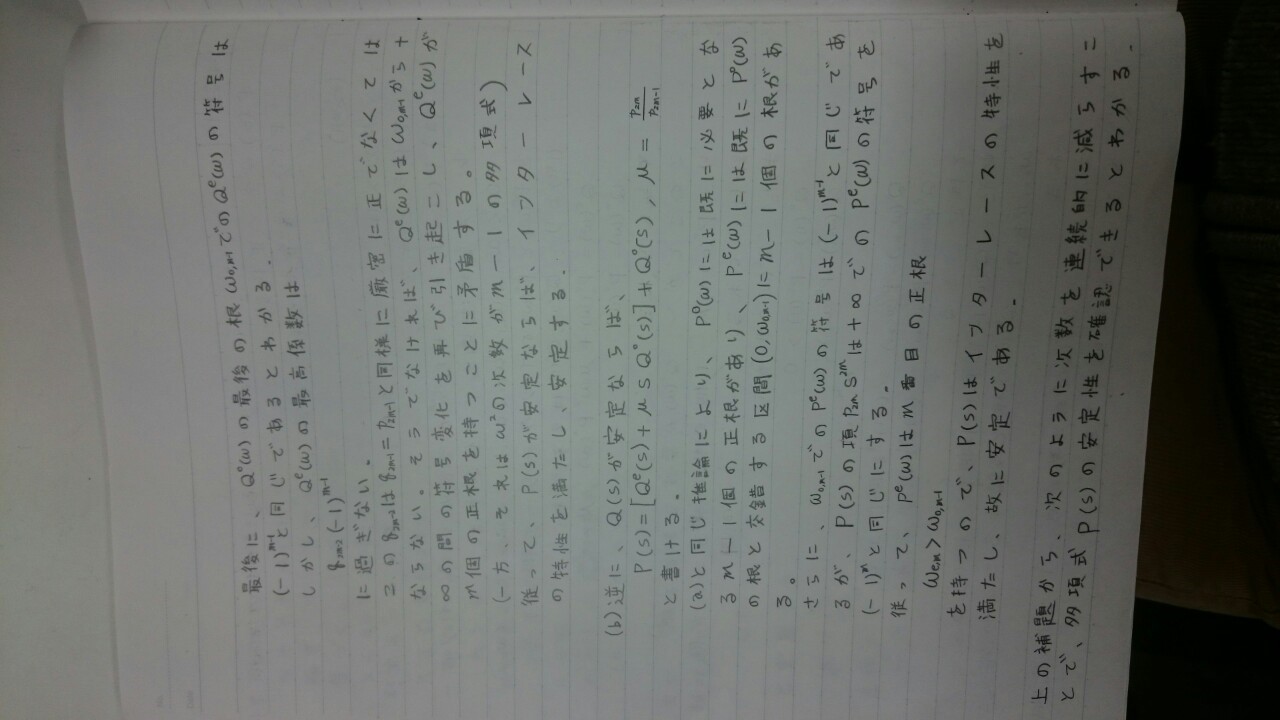 最後に、Q°(ω)の最後の根ω₀,ₘ₋₁でのQᵉ(ω)の符号は
(-1)ᵐ⁻¹と同じであるとわかる.
しかし、Qᵉ(ω)の最高係数は
q₂ₘ₋₂(-1)ᵐ⁻¹
に過ぎない。
このq₂ₘ₋₂はq₂ₘ₋₁=p₂ₘ₋₁と同様に厳密に正でなくては
ならない。そうでなければ、Qᵉ(ω)はω₀,ₘ₋₁から+
∞の間の符号変化を再び引き起こし、Qᵉ(ω)が
m個の正根を持つことに矛盾する。
(一方、それはω²の次数がm-1の多項式)
従って、P(s)が安定ならば、インターレース
の特性を満たし、安定する.
(b)逆に、Q(s)が安定ならば、
P(s)=[Qᵉ(s)+μsQ°(s)]+Q°(s), μ=p₂ₘ/p₂ₘ₋₁
と書ける。
(a)と同じ推論により、P°(ω)には既に必要とな
るm-1個の正根があり、Pᵉ(ω)には既にP°(ω)
の根と交錯する区間(0,ω₀,ₘ₋₁)にm-1個の根があ
る。
さらに、ω₀,ₘ₋₁でのPᵉ(ω)の符号は(-1)ᵐ⁻¹と同じであ
るが、P(s)の項p₂ₘs²ᵐは+∞でのPᵉ(ω)の符号を
(-1)ᵐと同じにする.
従って、Pᵉ(ω)はm番目の正根
ωₑ,ₘ>ω₀,ₘ₋₁
を持つので、P(s)はインターレースの特性を
満たし、故に安定である.
上の補題から、次のように次数を連続的に減らすこ
とで、多項式P(s)の安定性を確認できるとわかる.